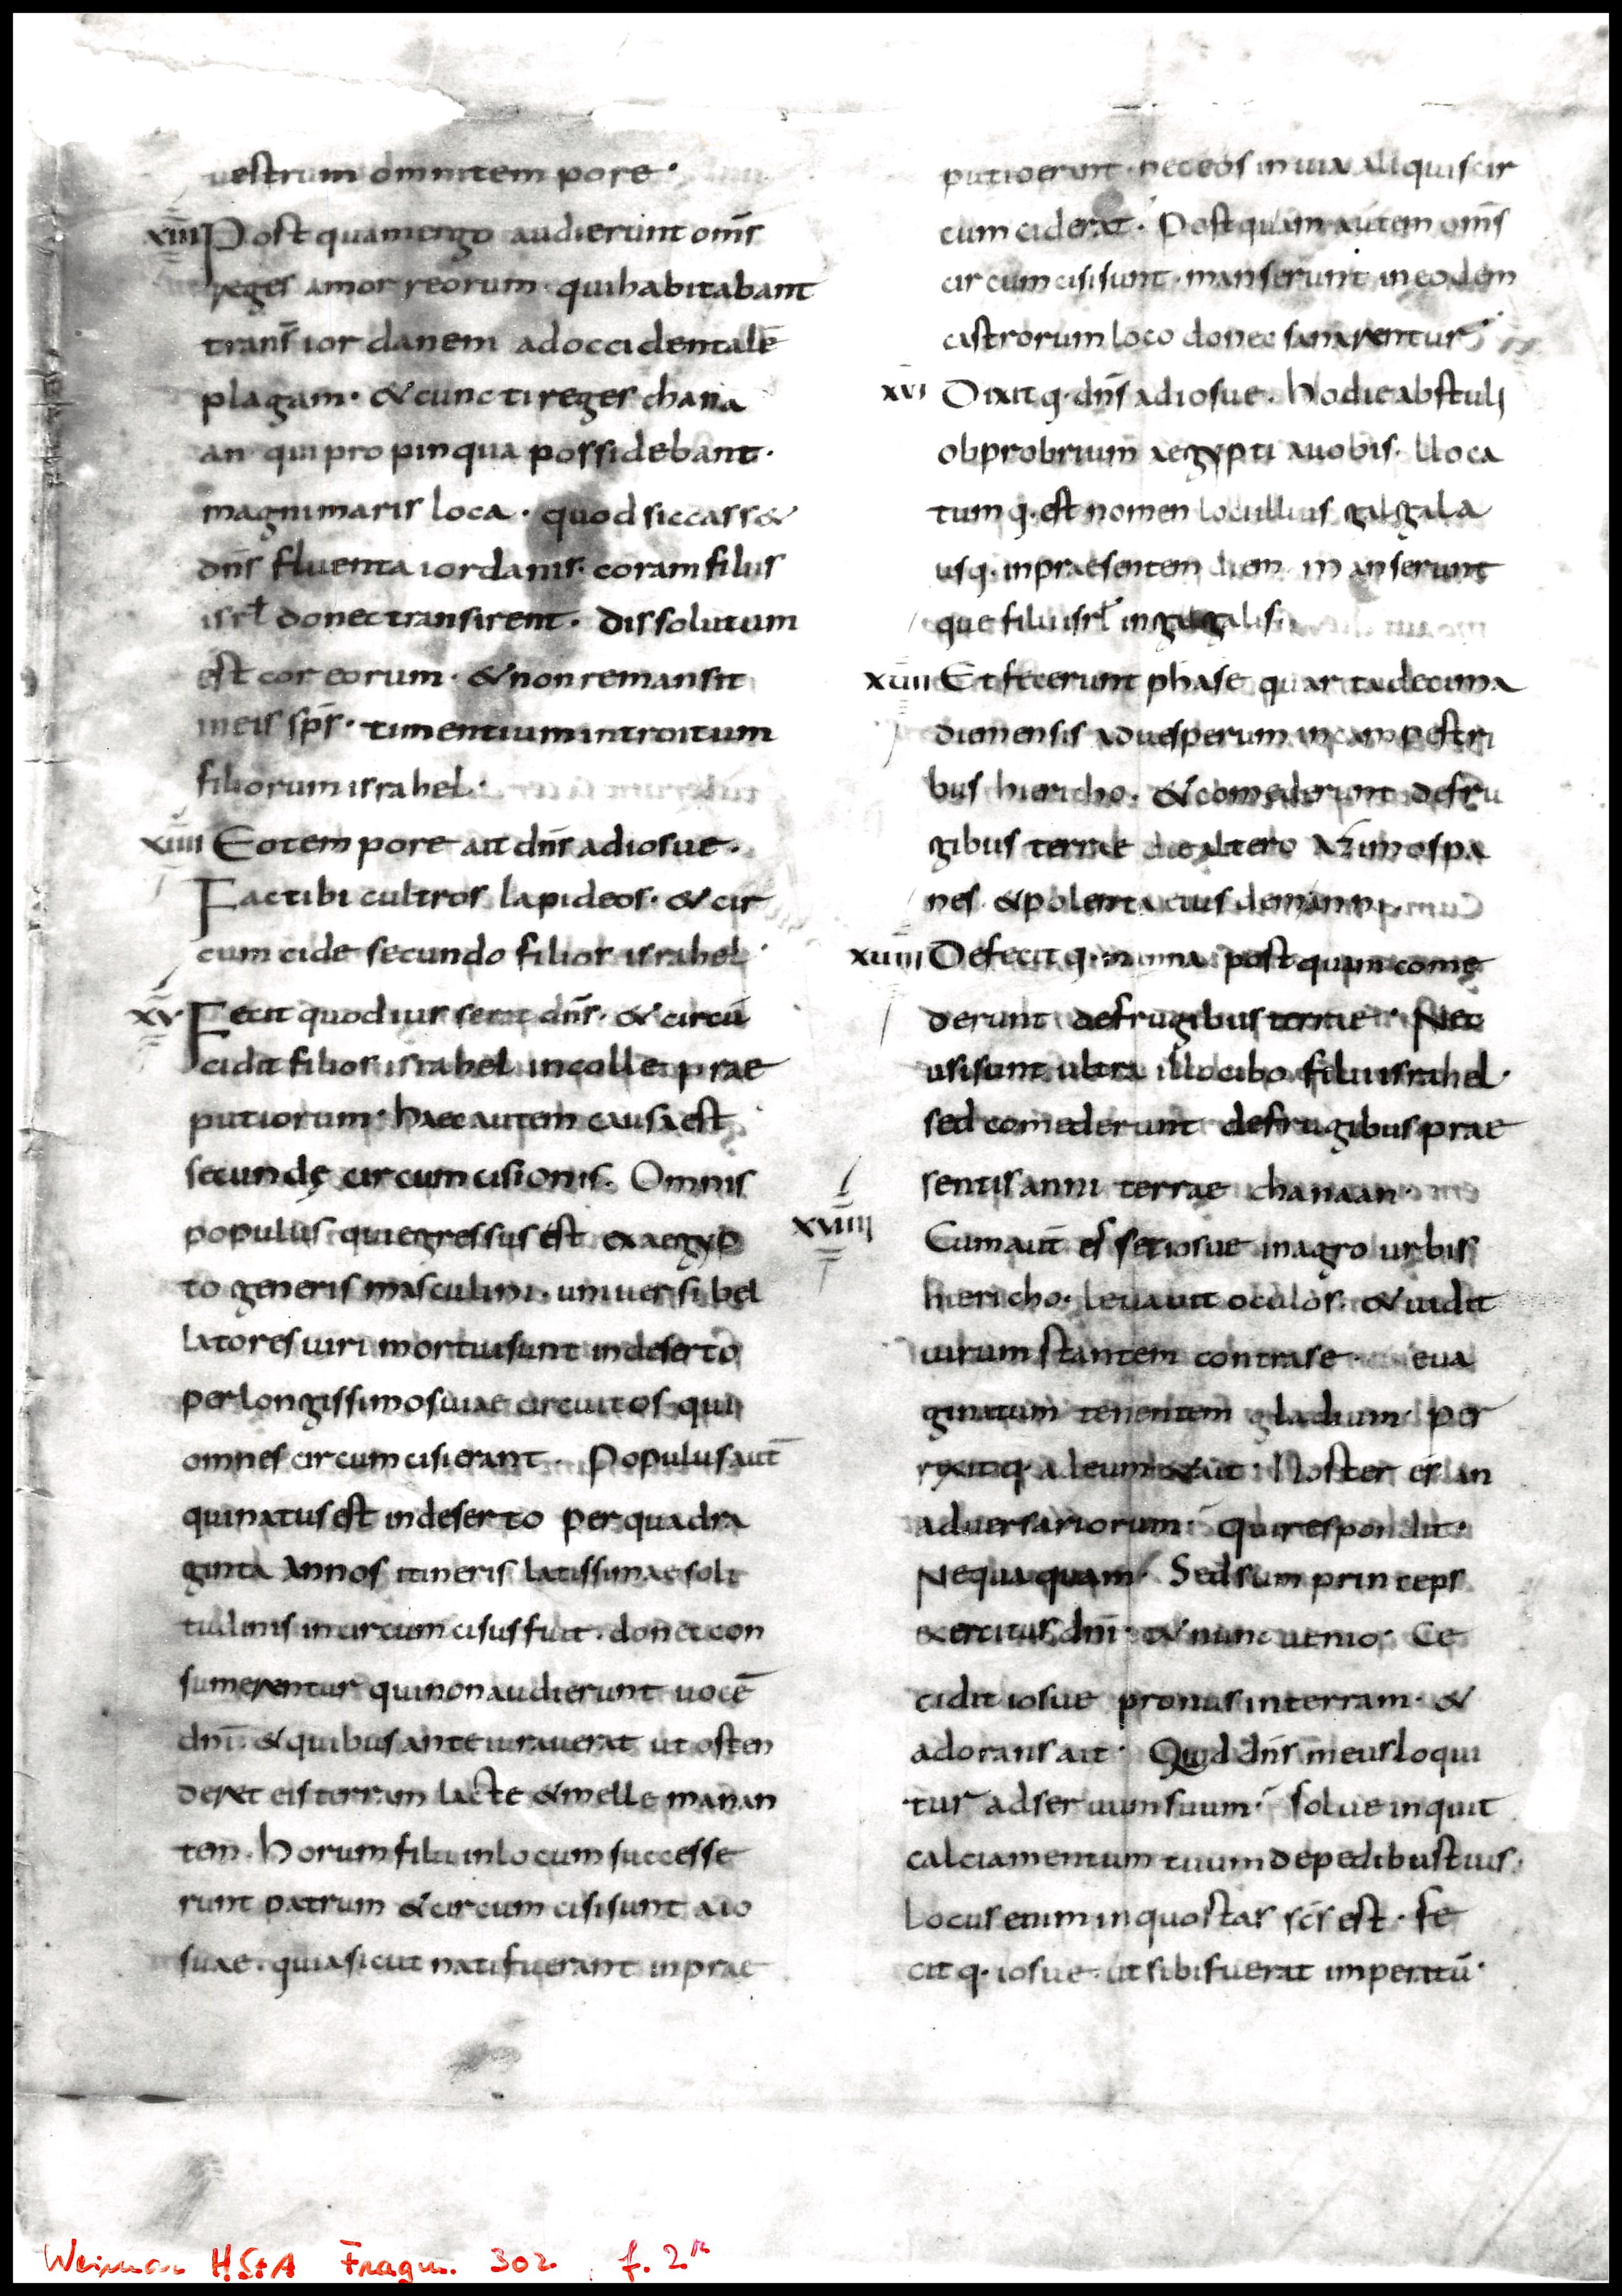 uestrum omnitempore·
xiii Postquam ergo audierunt om̄s
reges amorreorum· quihabitabant
trans iordanem adoccidentalē
plagam· &cuncti reges chana
an qui propinqua possidebant·
magnimaris loca· quod siccass&
dn̄s fluenta iordanis· coram filiis
isrł donec transirent· Dissolutum
est cor eorum· &nonremansit
ineis sp̄s· timentium introitum
filiorum israhel·
xiiii Eo tempore ait dn̄s adiosue·
Fac tibi cultros lapideos· &cir
cumcide secundo filios israhel·
xv· Fecit quod iusserat dn̄s· &circū
cidit filios israhel in colle prae
putiorum· haec autem causa est
secundę circumcisionis. Omnis
populus qui egressus est exaegyp
to generis masculini· uniuersi bel
latores uiri mortui sunt in deserto
per longissimos uiae circuitos qui
omnes circumcisi erant· Populus aut̄
qui natus est in deserto per quadra
ginta annos itineris latissimae soli
tudinis incircumcisus fuit· donec con
sumerentur qui non audierunt uocē
dn̄i· &quibus ante iurauerat ut osten
deret eis terram lacte &melle manan
tem· horum filii in locum successe
runt patrum &circumcisi sunt aio
suae· quia sicut nati fuerant in prae
putio erant· nec eos in uia aliquis cir
cumciderat· Postquam autem om̄s
circumcisi sunt· manserunt in eodem
castrorum loco donec sanarentur·
xvi Dixitq· dn̄s adiosue· hodie abstuli
obprobrium aegypti auobis· Uoca
tumq· est nomen loci illius galgala
usq· inpraesentem diem manserunt
que filii isrł in galgalis·
xvii Et fecerunt phase quartadecima
die mensis ad uesperum in campestri
bus hiericho· &comederunt de fru
gibus terrae die altero azimos pa
nes &polenta eius dem anni·
xviii Defecitq· manna postquam come
derunt de frugibus terrae· Nec
usi sunt ultra illo cibo filii israhel·
sed comederunt de frugibus prae
sentis anni terrae chanaan·
xviiii Cum aut̄ ess& iosue in agro urbis
hiericho· leuauit oculos· &uidit
uirum stantem contra se· eua
ginatum tenentem gladium· per
rexitq· ad eum &ait· Noster es an
aduersariorum· qui respondit·
Nequaquam· Sed sum princeps
exercitus dn̄i· &nunc uenio· Ce
cidit iosue pronus in terram· &
adorans ait· Quid dn̄s meus loqui
tur ad seruum suum· solue inquit
calciamentum tuum de pedibus tuis·
locus enim in quo stas sc̄s est· fe
citq· iosue· ut sibi fuerat imperatū·
Weimar HStA Fragm. 302, f. 2r